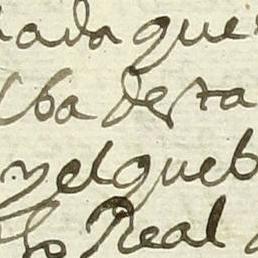 ada que
lba desta
y el queb
Real